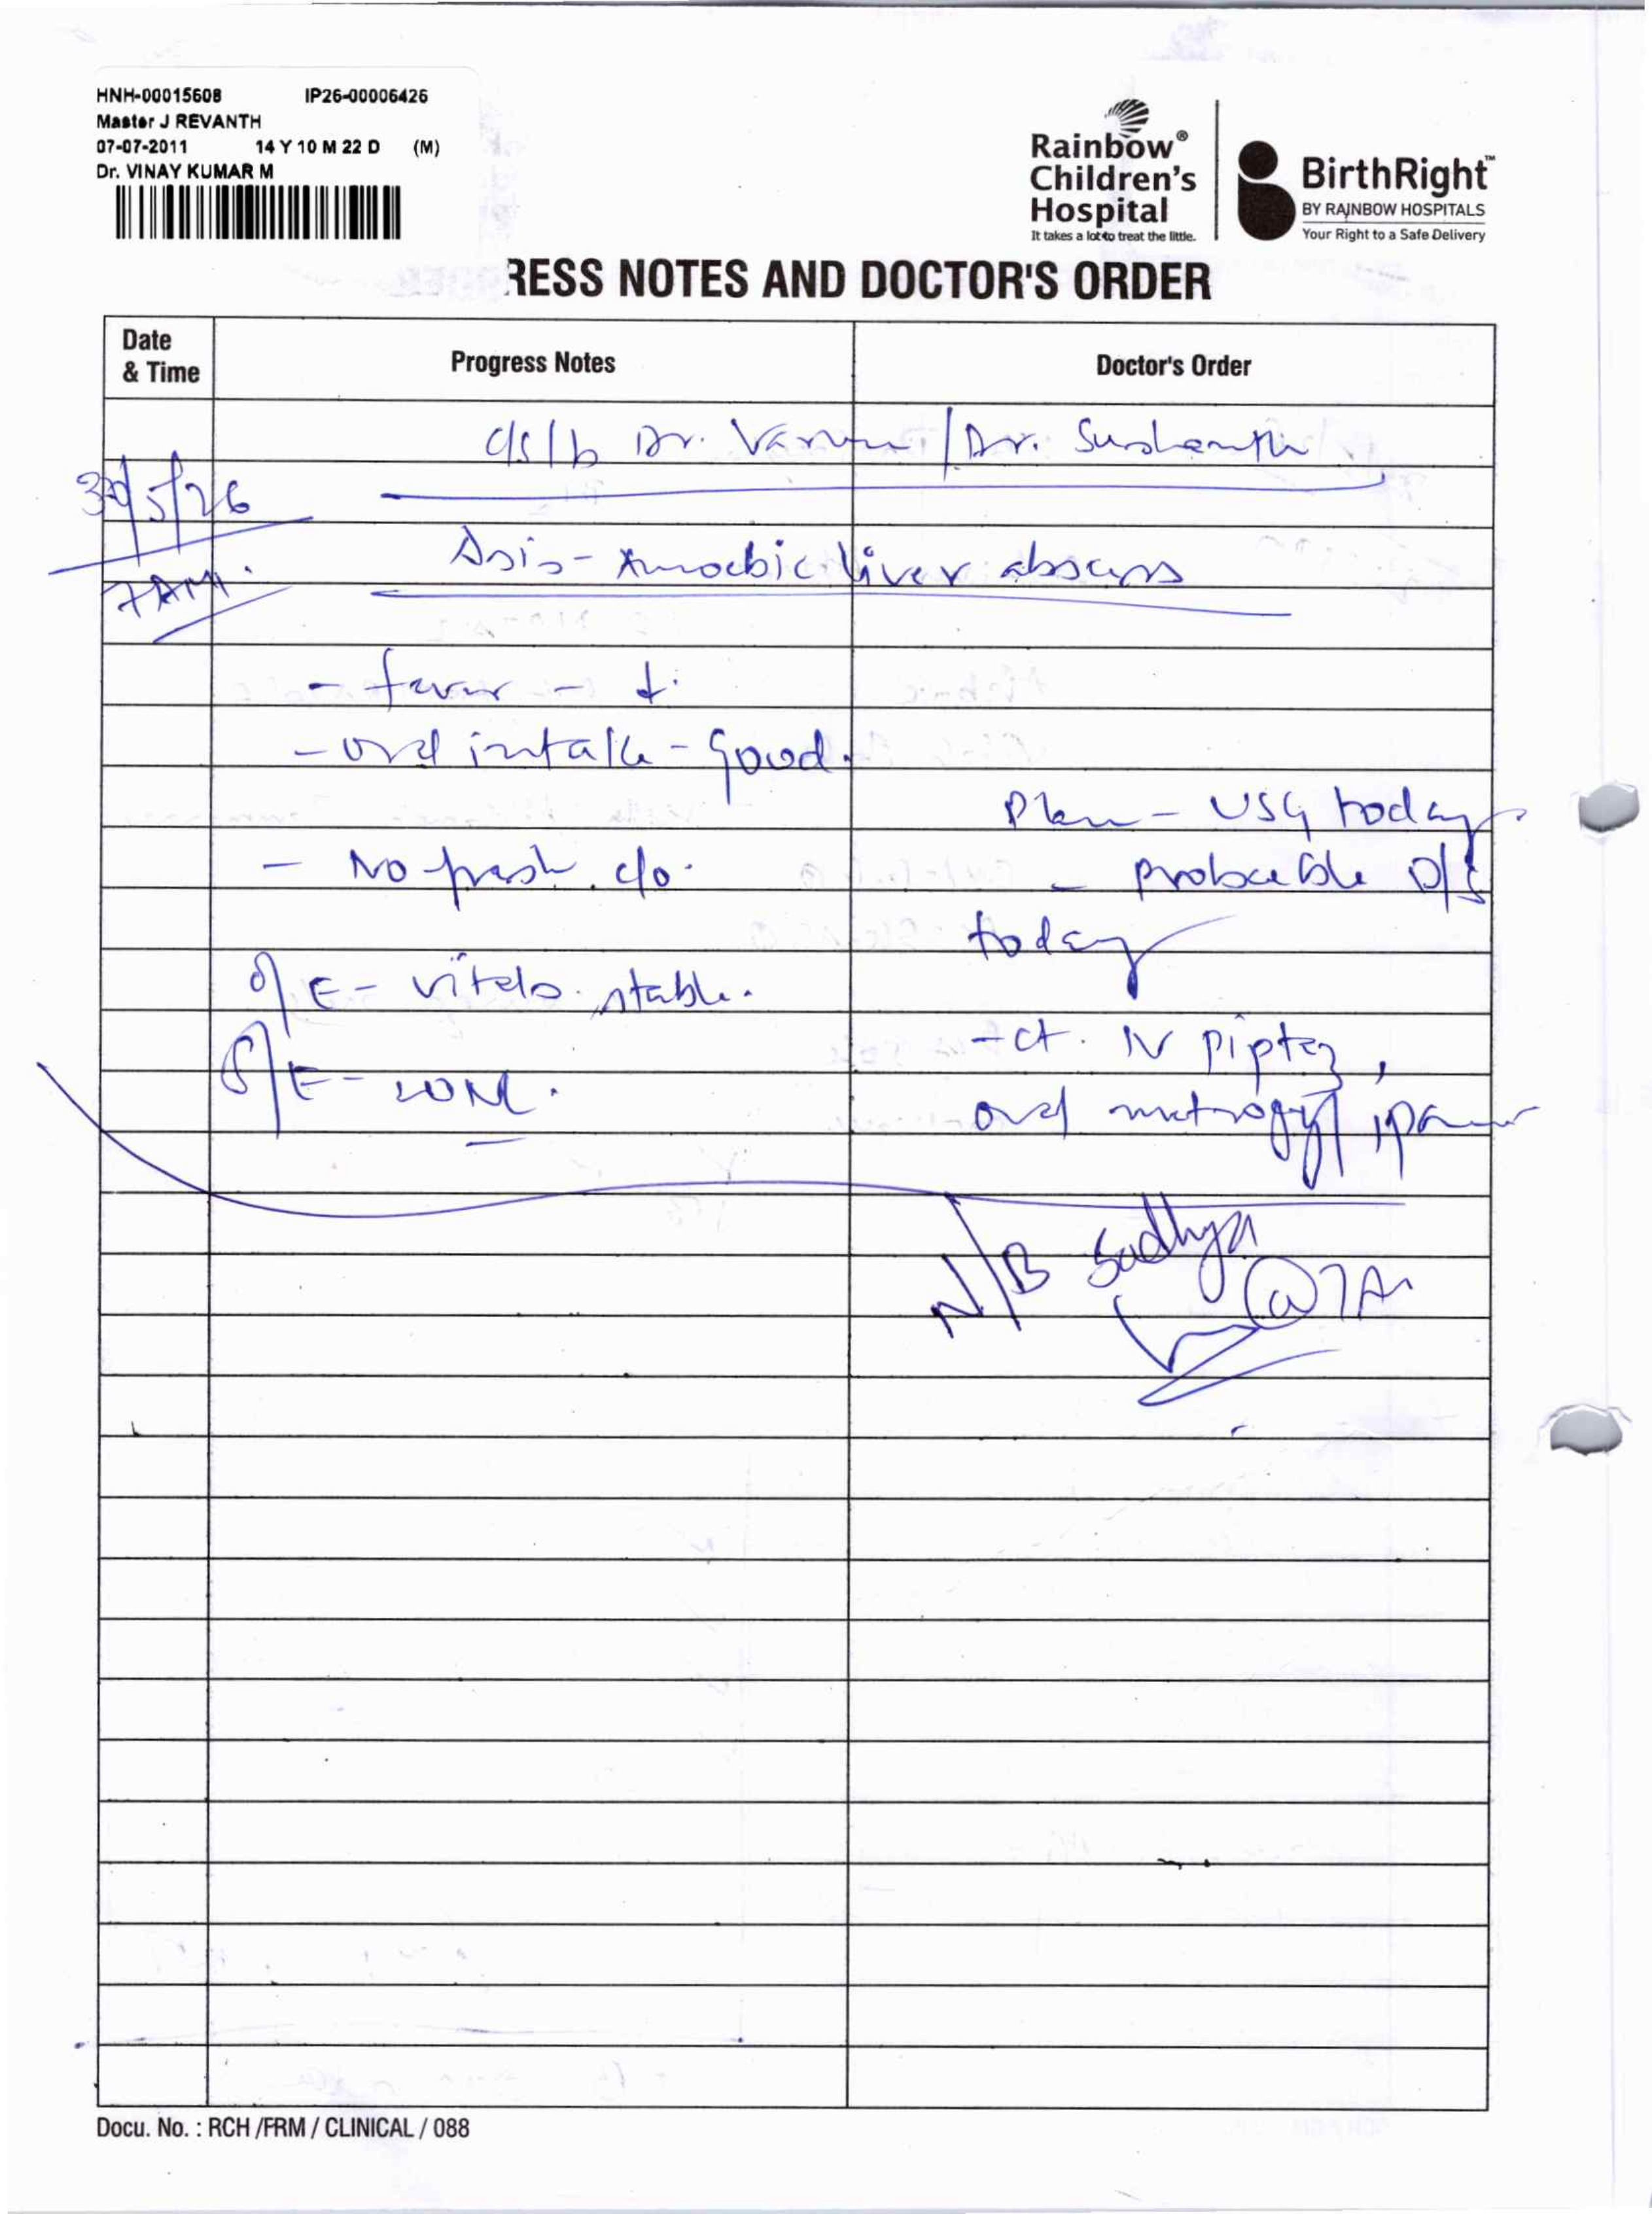 HNH-00015608 IP26-00006426
Master J REVANTH
07-07-2011 14 Y 10 M 22 D (M)
Dr. VINAY KUMAR M
Rainbow®
Children's
Hospital
It takes a lot to treat the little.
BirthRight™
BY RAINBOW HOSPITALS
Your Right to a Safe Delivery
RESS NOTES AND DOCTOR'S ORDER
Date
& Time
Progress Notes
Doctor's Order
c/s/b Dr. Varun / Dr. Sushanth
30/5/26
7AM.
Dsis - Amoebic liver abscess
- fever - ↓.
- oral intake - Good.
Plan - USG today
- No fresh c/o.
- probable D/s
today
O/E - vitals stable.
- ct. IV piptaz,
S/E - WNL.
oral metrogyl
N/B Sadhya
@7Am
Docu. No. : RCH /FRM / CLINICAL / 088